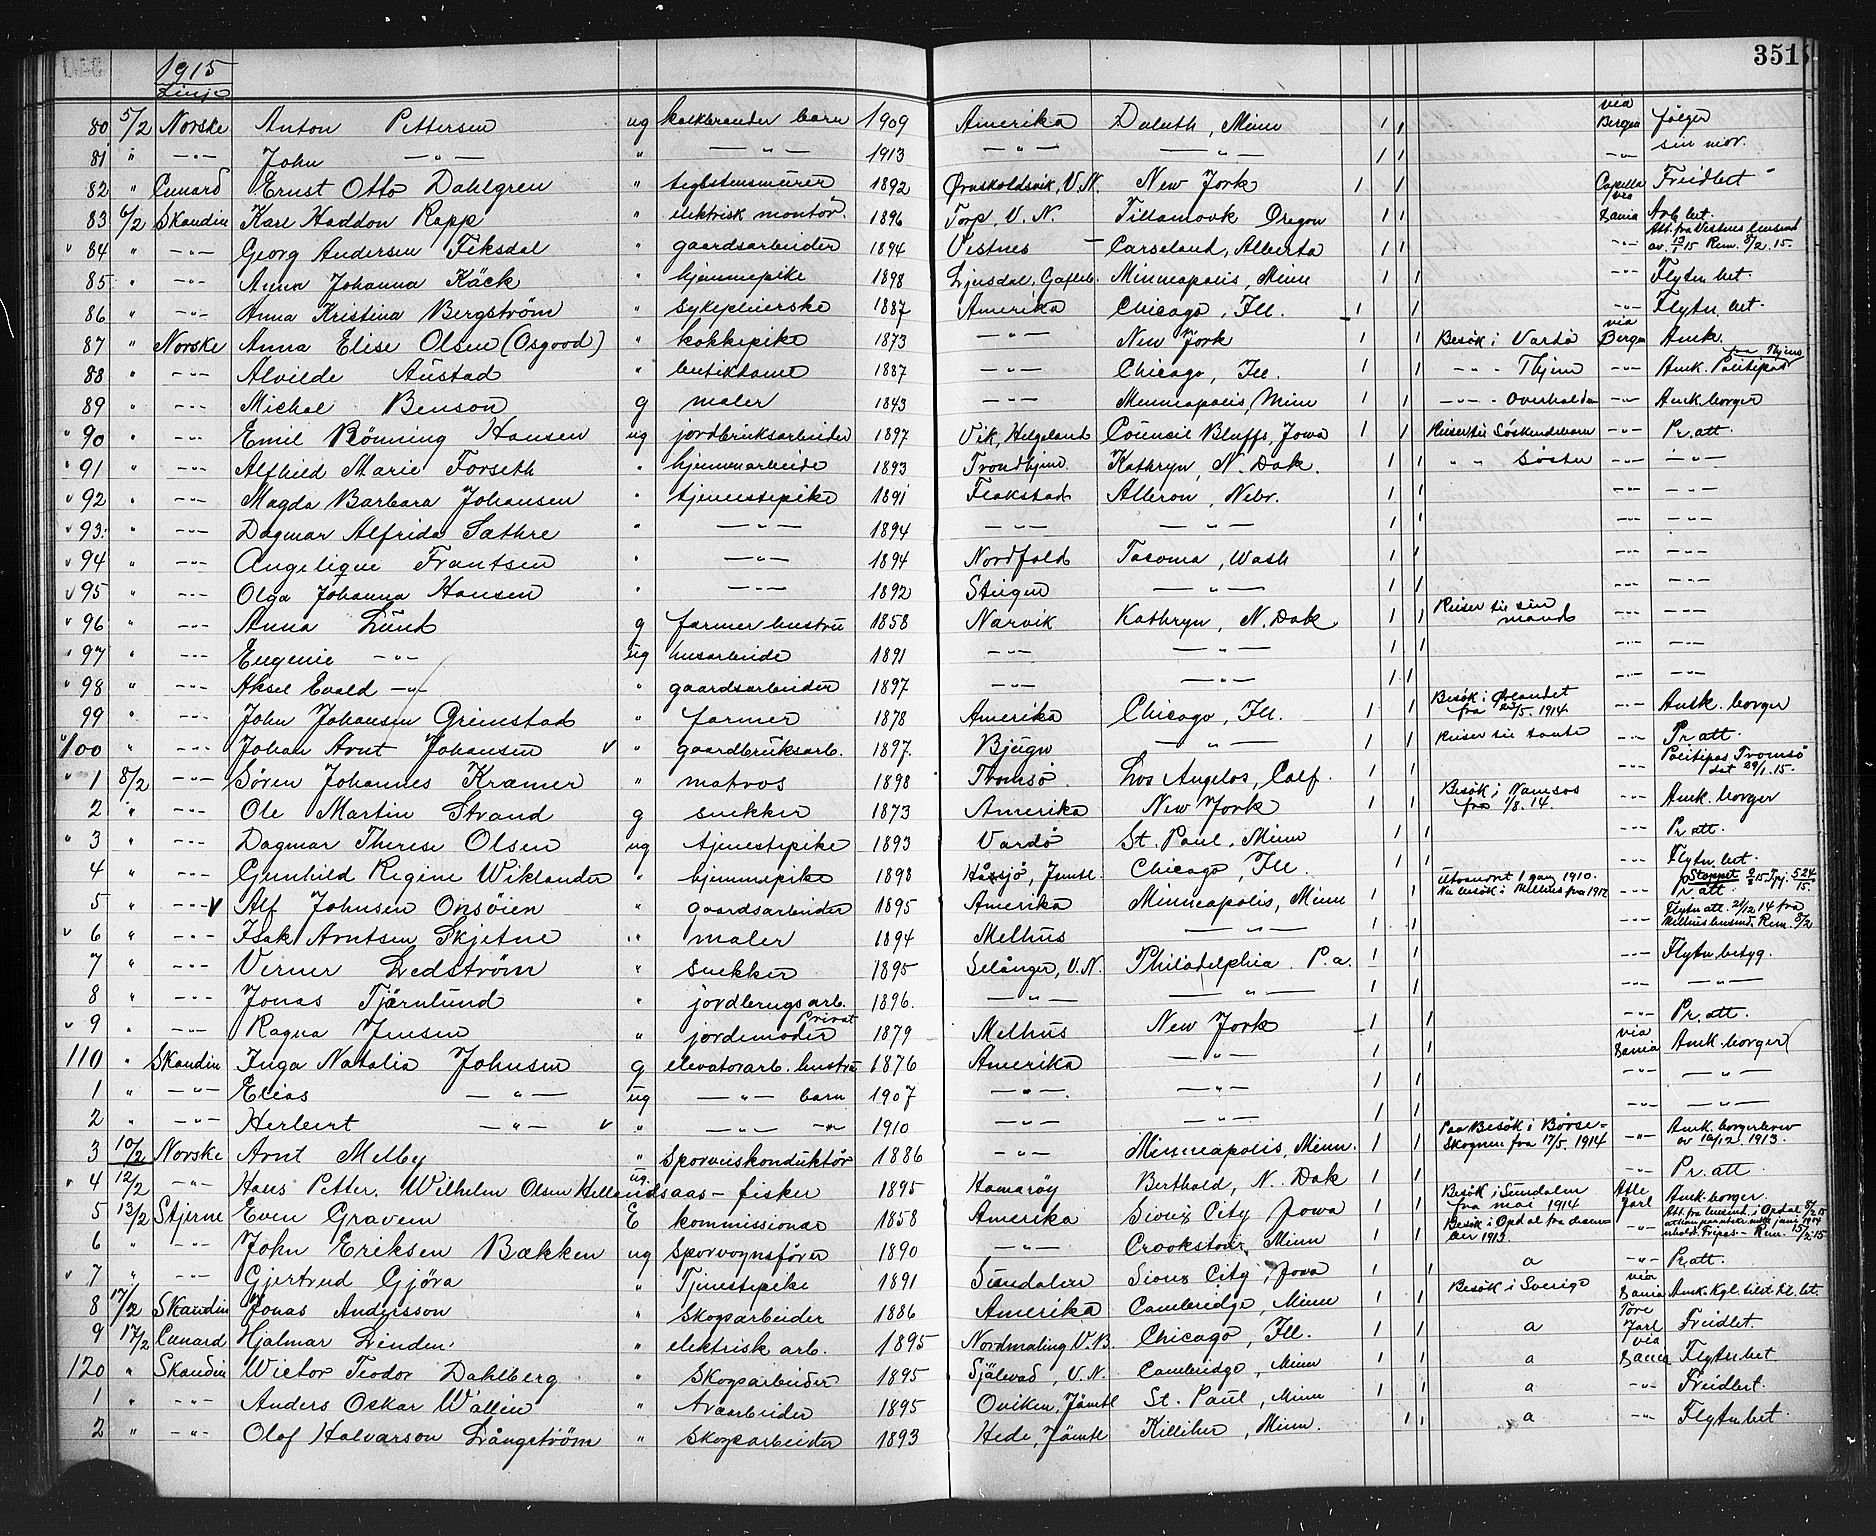 1915 351
Linje
80 5/2 Norske Anton Pettersen ug kalkbrander barn 1909 Amerika Duluth, Minn 1 1 via Bergen følger
81 " —"— John —"— " —"— 1913 —"— —"— 1 1 —"— sin mor.
82 " Cunard Ernst Otto Dahlgren " teglstensmurer 1892 Ørnskoldsvik, V.N. New York 1 1 Capella Freidbet
83 6/2 Skandin Karl Haddon Rapp " elektrisk montør. 1896 Torp, V.N. Tillamook Oregon 1 1 via Dania Arb. bet.
84 " —"— Georg Andersen Fiksdal " gaardsarbeider 1894 Vestnes — Carseland, Alberta 1 1 —"— Att. fra Vestnes lensmd av 12/1 15 Rem. 8/2. 15.
85 " —"— Anna Johanna Käck " hjemmepike 1898 Ljusdal, Gefleb. Minneapolis, Minn 1 1 —"— Flytn. bet.
86 " —"— Anna Kristina Bergström " sykepleierske 1887 Amerika Chicago, Ill. 1 1 —"— Flytn. bet.
87 " Norske Anna Elise Olsen (Osgood) " kokkepike 1873 —"— New York 1 1 Besøk i Vardø via Bergen Amk.
88 " —"— Alvilde Austad " butikdame 1887 —"— Chicago, Ill. 1 1 —"— Thjem —"— Amk. Politipas fra Thjem
89 " —"— Michal Benson g maler 1843 —"— Minneapolis, Minn 1 1 —"— Overhalden —"— Amk. borger
90 " —"— Emil Bønning Hansen ug jordbruksarbeider 1897 Vik, Helgeland Council Bluffs, Jowa 1 1 Reiser til Søskendebarn —"— Pr. att.
91 " —"— Alfhild Marie Forseth " hjemmearbeide 1893 Trondhjem Kathryn, N. Dak. 1 1 " " Søster —"— —"—
92 " —"— Magda Barbara Johansen " tjenestepike 1891 Flakstad Albion, Nebr. 1 1 —"— —"—
93 " —"— Dagmar Alfrida Sæthre " —"— 1894 —"— —"— 1 1 —"— —"—
94 " —"— Angelique Frantsen " —"— 1894 Nordfold Tacoma, Wash 1 1 —"— —"—
95 " —"— Olga Johanna Hansen " —"— 1892 Steigen —"— 1 1 —"— —"—
96 " —"— Anna Lund g farmer hustru 1858 Narvik Kathryn, N. Dak 1 1 Reiser til sin mand —"— —"—
97 " —"— Eugenie —"— ug husarbeide 1891 —"— —"— 1 1 —"— —"—
98 " —"— Aksel Evald —"— " gaardsarbeider 1897 —"— —"— 1 1 —"— —"—
99 " —"— John Johansen Grimstad " farmer 1878 Amerika Chicago, Ill. 1 1 Besøk i Ørlandet fra 23/5. 1914 —"— Amk. borger
100 " —"— Johan Arnt Johansen v " gaardbruksarb. 1897. Bjugn —"— 1 1 Reiser til tante —"— Pr att.
1 8/2 —"— Søren Johannes Kræmer " matros 1898 Tromsø Los Angelos, Calf. 1 1 —"— Politipas Tromsø dat 29/1. 15.
2 " —"— Ole Martin Strand g snekker 1873 Amerika New York 1 1 Besøk i Namsos fra 1/8. 14. —"— Amk. borger
3 " —"— Dagmar Therese Olsen ug tjenestepike 1893 Vardø St. Paul, Minn 1 1 —"— Pr. att.
4 " —"— Gunhild Regine Wiklander " hjemmepike 1898 Håsjö, Jemtl. Chicago, Ill. 1 1 —"— Flytn. bet.
5 " —"— v Alf Johnsen Onsøien " gaardsarbeider 1895 Amerika Minneapolis, Minn 1 1 Utvandret 1 gang 1910. Nu besøk i Melhus fra 1912 —"— Pr att. Stoppet 9/2 15 Jpj. 524/15.
6 " —"— Isak Arntsen Skjetne " maler 1894 Melhus —"— 1 1 —"— Flytn att. 21/12 14 fra Melhus lensmd. Rem. 8/2
7 " —"— Verner Ledström " snekker 1895 Selånger, V.N. Philadelphia P.a. 1 1 —"— Flytn. betyg.
8 " —"— Jonas Tjärnlund " jordbrugsarb. 1896. —"— —"— 1 1 —"— —"—
9 " —"— Ragna Jensen " Privat jordemoder 1879 Melhus New York 1 1 —"— Pr. att.
110 " Skandin Inga Natalia Johnsen g elevatorarb. hustru 1876 Amerika —"— 1 1 via Dania Amk. borger
1 " —"— Elias —"— ug —"— barn 1907 —"— —"— 1 1 —"— —"—
2 " —"— Herbert —"— v " —"— —"— 1910 —"— —"— 1 1 —"— —"—
3 10/2 Norske Arnt Melby " Sporveiskonduktör 1886 —"— Minneapolis, Minn. 1 1 Paa Besøk i Børse-Skognen fra 17/5. 1914 —"— Amk. borgerbrev av 16/12 1913.
4 12/2 —"— Hans Petter. Wilhelm Olsen Hellandsaas ug. — fisker 1895 Hamarøy Berthold, N. Dak 1 1 —"— Pr. att
5 13/2 Stjerne Even Gravem E kommissionær 1858 Amerika Sioux City Jowa 1 1 Besøk i Sundalen fra mai 1914 Atle Jarl Amk. borger.
6 " —"— John Eriksen Bækken ug Sporvognsfører 1890 —"— Crookston, Minn 1 1 Besøk i Opdal fra desember 1913. —"— Att. fra lensmd. i Opdal 8/2 15
7 " —"— Gjertrud Gjøra " Tjenestepike 1891 Sundalen Sioux City, Jova 1 1 a —"— Pr att.
8 17/2 Skandin Jonas Andersson " Skogsarbeider 1886 Amerika Cambridge, Minn 1 1 Besøk i Sverige via Dania
9 17/2 Cunard Hjalmar Linden " elektrisk arb. 1895 Nordmaling V.B. Chicago, Ill. 1 1 a Tore Jarl Freidbet.
120 " Skandin Wictor Teodor Dahlberg " Skogsarbeider 1895 Själevad, V.N. Cambridge, Minn 1 1 a via Dania Flytn bet
1 " —"— Anders Oskar Wallin " Avaarbeider 1895 Oviken, Jämtl St. Paul, Minn 1 1 a —"— Freidbet.
2 " —"— Olof Halvarson Långström " Skogsarbeider 1893 Hede, Jämtl Killiher, Minn. 1 1 a —"— Flytn bet.